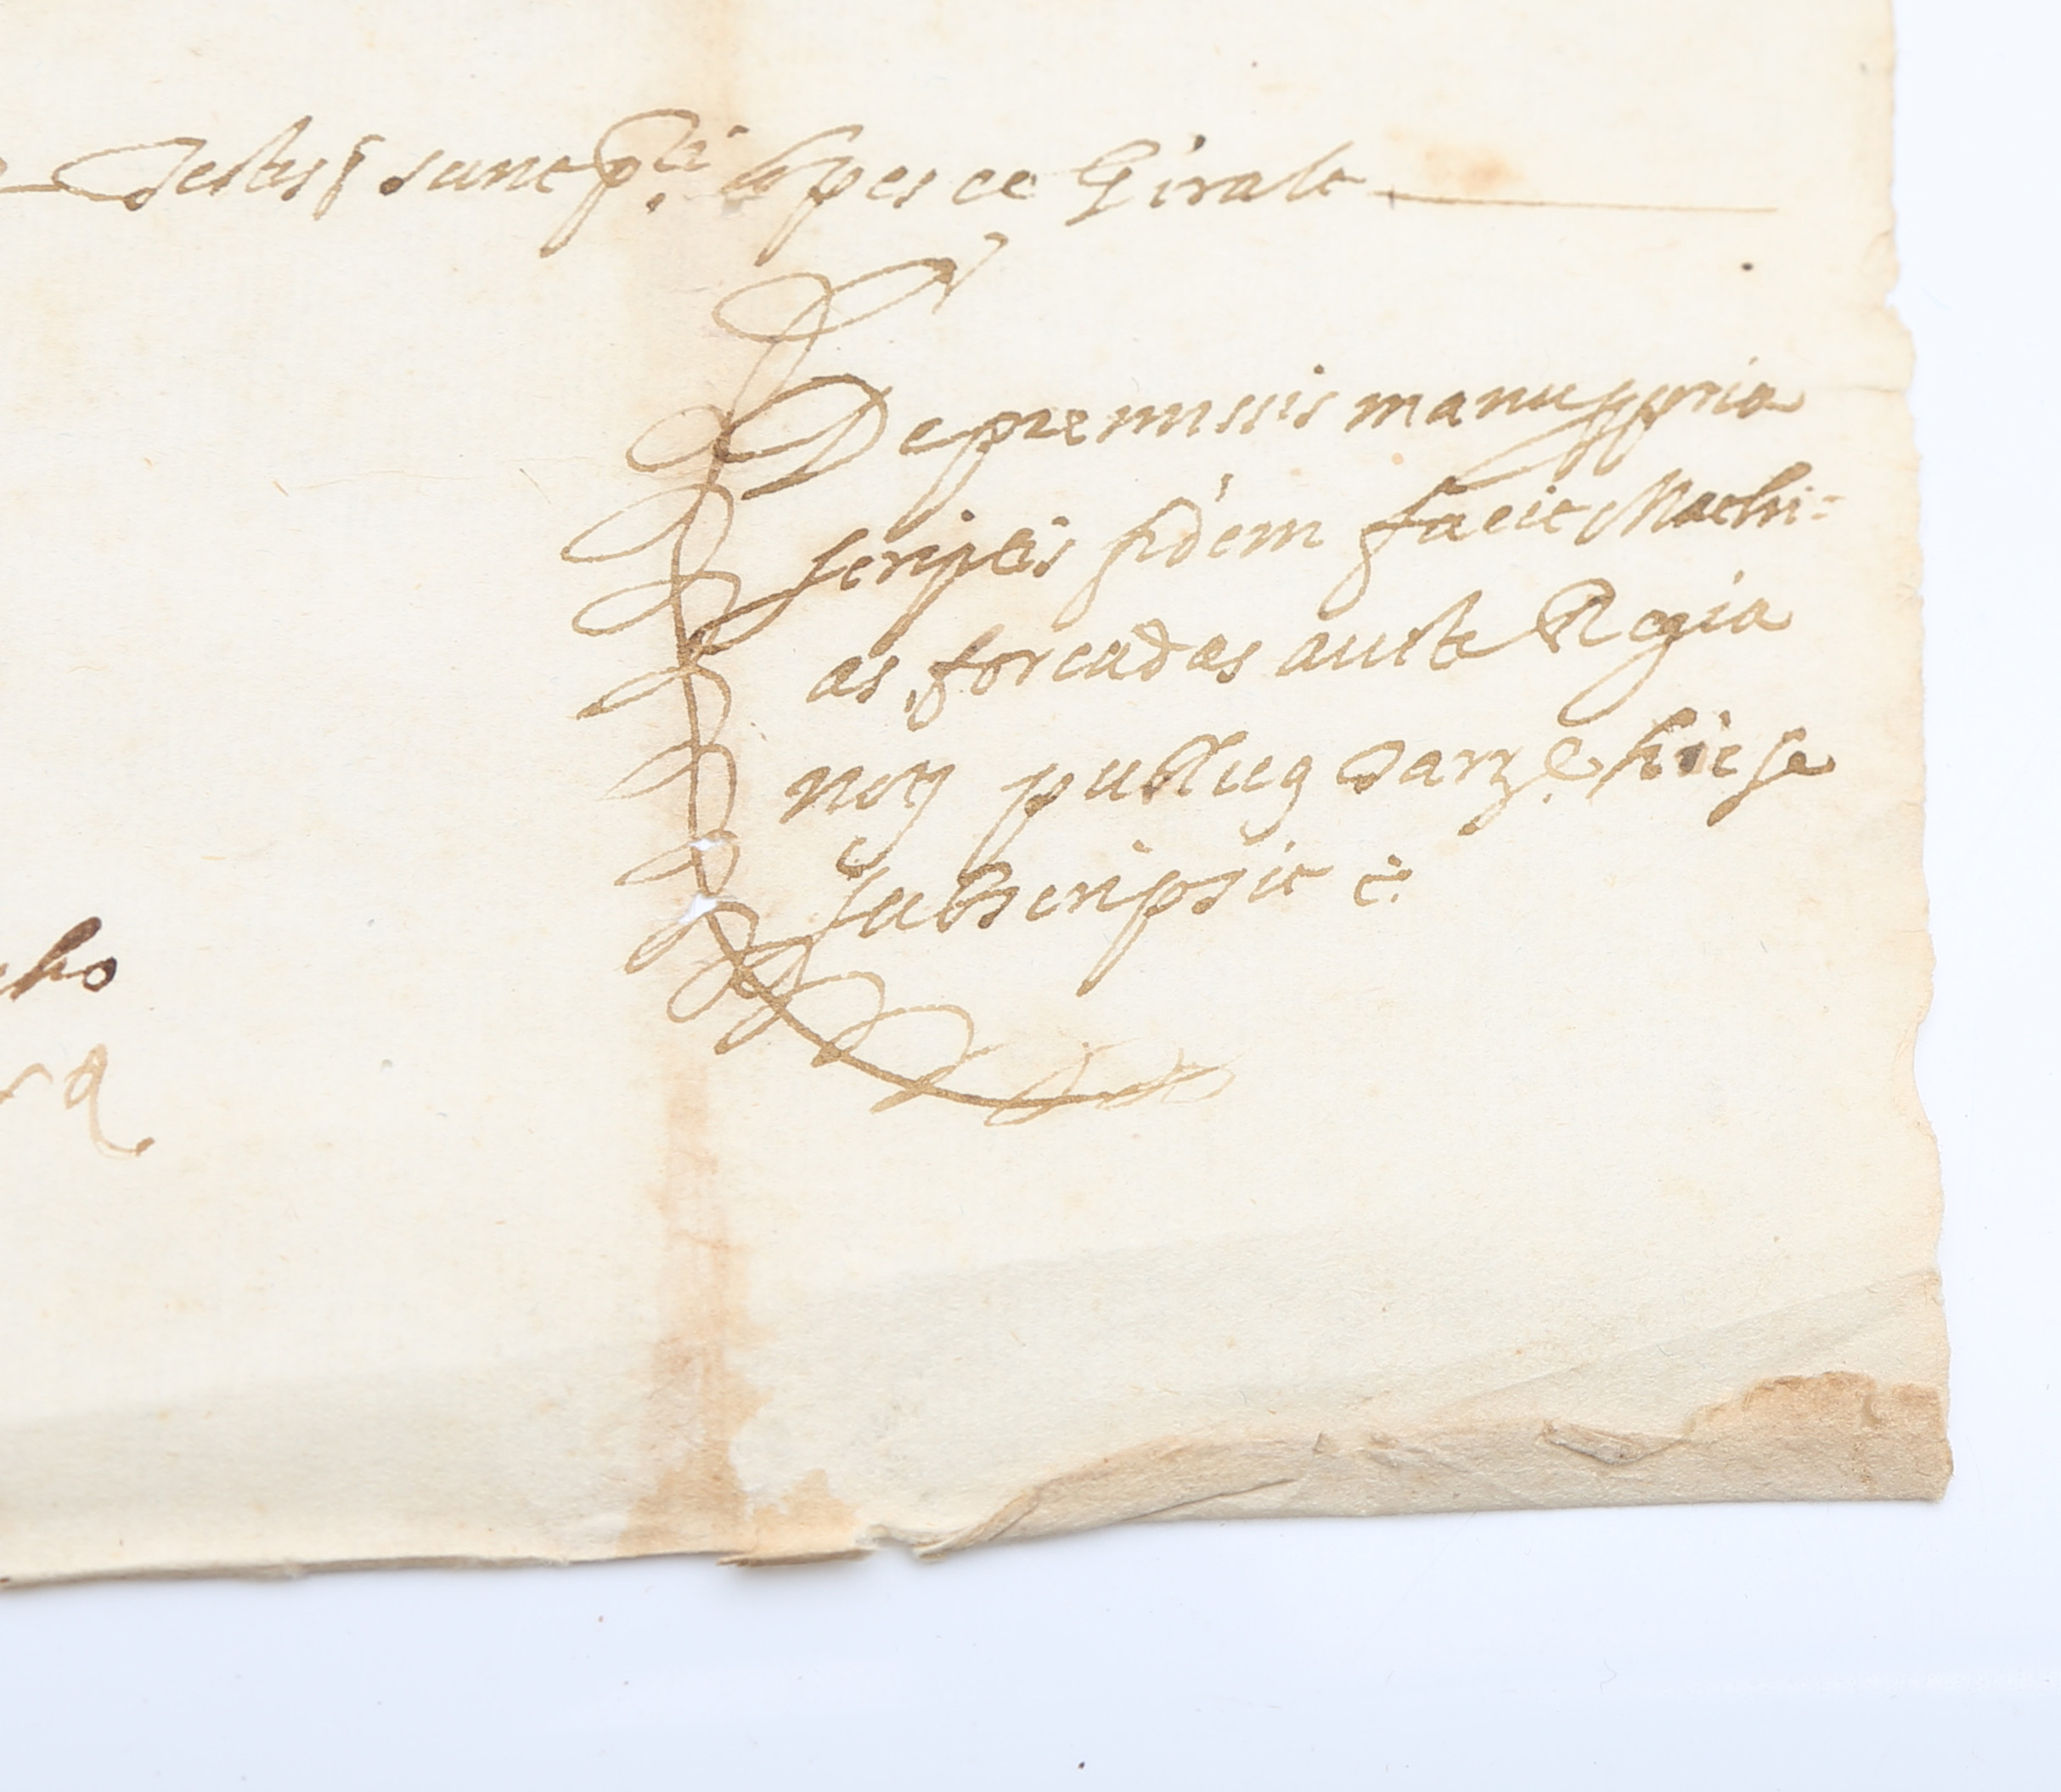 Testes sunt p.ti lopes et Giralt
De premissis manu ppria
scriptis fidem facit Mathi-
as forcades aucte Regia
noty publicq Darz e hic se
subscripsit
cho